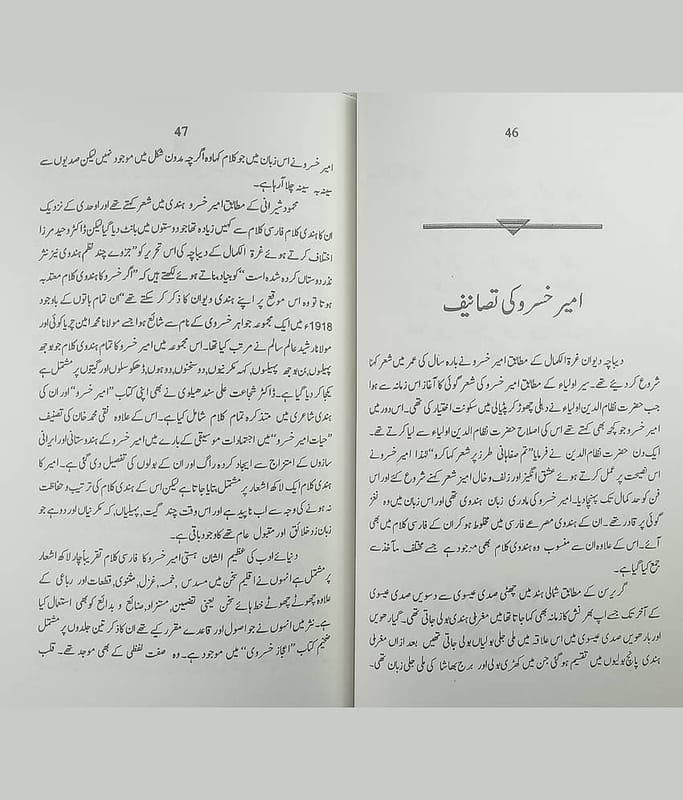 46
امیر خسرو کی تصانیف
دیباچہ دیوان غرۃ الکمال کے مطابق امیر خسرو نے بارہ سال کی عمر میں شعر کہنا
شروع کر دیئے تھے۔ سیر اولیاء کے مطابق امیر خسرو کی شعر گوئی کا آغاز اس زمانہ سے ہوا
جب حضرت نظام الدین اولیاء نے دہلی چھوڑ کر پٹیالی میں سکونت اختیار کی تھی۔ اس دور میں
امیر خسرو جو کچھ بھی کہتے تھے اس کی اصلاح حضرت نظام الدین اولیاء سے لیا کرتے تھے۔
ایک دن حضرت نظام الدین نے فرمایا ”تم صفاہانی طرز پر شعر کہا کرو“ لہٰذا امیر خسرو نے
اس نصیحت پر عمل کرتے ہوئے عشق انگیز اور زلف و خال امیز شعر کہنے شروع کئے اور اس
فن کو حد کمال تک پہنچا دیا۔ امیر خسرو کی مادری زبان ہندوی تھی اور اس زبان میں وہ نغز
گوئی پر قادر تھے۔ ان کے ہندوی مصرعے فارسی میں مخلوط ہو کر ان کے فارسی کلام میں بھی
آئے۔ اس کے علاوہ ان سے منسوب وہ ہندوی کلام بھی موجود ہے جسے مختلف مآخذ سے
جمع کیا گیا ہے۔
گریرسن کے مطابق شمالی ہند میں چھٹی صدی عیسوی سے دسویں صدی عیسوی
کے آخر تک جسے اپ بھرنش کا زمانہ بھی کہا جاتا تھا میں مغربی ہندی بولی جاتی تھی۔ گیارھویں
اور بارھویں صدی عیسوی میں اس علاقہ میں ملی جلی بولیاں بولی جاتی تھیں بعد ازاں مغربی
ہندی پانچ بولیوں میں تقسیم ہو گئی جن میں کھڑی بولی اور برج بھاشا کی ملی جلی زبان تھی۔
47
امیر خسرو نے اس زبان میں جو کلام کہا وہ اگرچہ مدون شکل میں موجود نہیں لیکن صدیوں سے
سینہ بہ سینہ چلا آ رہا ہے۔
محمود شیرانی کے مطابق امیر خسرو ہندی میں شعر کہتے تھے اور اوحدی کے نزدیک
ان کا ہندی کلام فارسی کلام سے کہیں زیادہ تھا جو دوستوں میں بانٹ دیا گیا لیکن ڈاکٹر وحید مرزا
اختلاف کرتے ہوئے غرۃ الکمال کے دیباچہ کی اس تحریر کو ”جزوے چند نظم ہندوی نیز نثر
نذر دوستاں کردہ شدہ است“ کو بنیاد بناتے ہوئے لکھتے ہیں کہ ”اگر خسرو کا ہندوی کلام معتدبہ
ہوتا تو وہ اس موقع پر اپنے ہندی دیوان کا ذکر کر سکتے تھے“ ان تمام باتوں کے باوجود
1918ء میں ایک مجموعہ جواہر خسروی کے نام سے شائع ہوا جسے مولانا محمد امین چریا کوٹی اور
مولانا رشید عالم سالم نے مرتب کیا تھا۔ اس مجموعہ میں امیر خسرو کا تمام ہندوی کلام جو بوجھ
پہیلوں، بن بوجھ پہیلوں، کہہ مکرنیوں، دوسخنوں، دوہوں، ڈھکوسلوں اور گیتوں پر مشتمل ہے
یکجا کر دیا گیا ہے۔ ڈاکٹر شجاعت علی سندھیلوی نے بھی اپنی کتاب ”امیر خسرو“ اور ان کی
ہندی شاعری میں متذکرہ تمام کلام شامل کیا ہے۔ اس کے علاوہ نقی محمد خان کی تصنیف
”حیات امیر خسرو“ میں اجتہادات موسیقی کے بارے میں امیر خسرو کے ہندوستانی اور ایرانی
سازوں کے امتزاج سے ایجاد کردہ راگ اور ان کے بولوں کی تفصیل دی گئی ہے۔ امیر کا
ہندی کلام ایک لاکھ اشعار پر مشتمل بتایا جاتا ہے لیکن اس کے ہندی کلام کی ترتیب و حفاظت
نہ ہونے کی وجہ سے اب ناپید ہے اور اس وقت چند گیت، پہیلیاں، کہہ مکرنیاں اور دوہے جو
زبان زد خلائق اور مقبول عام تھے کا وجود باقی ہے۔
دنیائے ادب کی عظیم الشان ہستی امیر خسرو کا فارسی کلام تقریباً چار لاکھ اشعار
پر مشتمل ہے انہوں نے اقلیم سخن میں مسدس، خمسہ، غزل، مثنوی، قطعات اور رباعی کے
علاوہ چھوٹے چھوٹے خط ہائے سخن یعنی تضمین، مستزاد، صنائع و بدائع کو بھی استعمال کیا
ہے۔ نثر میں انہوں نے جو اصول اور قاعدے مقرر کیے تھے ان کا ذکر تین جلدوں پر مشتمل
ضخیم کتاب ”اعجاز خسروی“ میں موجود ہے۔ وہ صنعت لفظی کے بھی موجد تھے۔ قلب